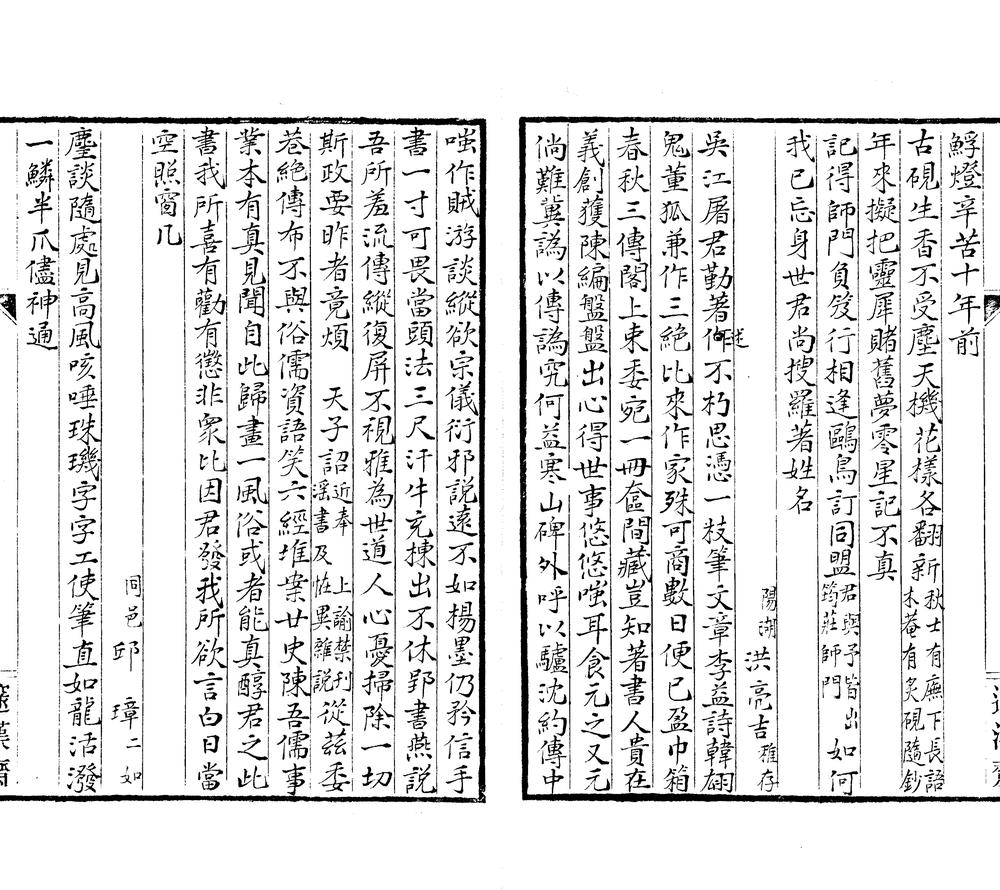 鰕燈辛苦十年前
古硯生香不受塵天機花樣各翻新秋士有廡下長語木菴有炙硯隨鈔
年來擬把靈犀賭舊夢零星記不真
記得師門負笈行相逢鷗鳥訂同盟君與予皆出筠莊師門如何
我已忘身世君尚搜羅著姓名
陽湖洪亮吉稚存
吳江屠君勤著述作不朽思憑一枝筆文章李益詩韓翃
鬼董狐兼作三絕比來作家殊可商數日便已盈巾箱
春秋三傳閣上束委宛一冊奩間藏豈知著書人貴在
義創獲陳編盤盤出心得世事悠悠嗤耳食元之又元
倘難冀譌以傳譌究何益寒山碑外呼以驢沈約傳中
嗤作賊游談縱欲宗儀衍邪說遠不如楊墨仍矜信手
書一寸可畏當頭法三尺汗牛充棟出不休郢書燕說
吾所羞流傳縱復屏不視雅為世道人心憂掃除一切
斯政要昨者竟煩天子詔近奉上諭禁刊淫書及怪異雜說從茲委
巷絕傳布不與俗儒資語笑六經堆案廿史陳吾儒事
業本有真見聞自此歸畫一風俗或者能真醇君之此
書我所喜有勸有懲非眾比因君發我所欲言白日當
空照窗几
同邑邱璋二如
麈談隨處見高風咳唾珠璣字字工使筆直如龍活潑
一鱗半爪儘神通